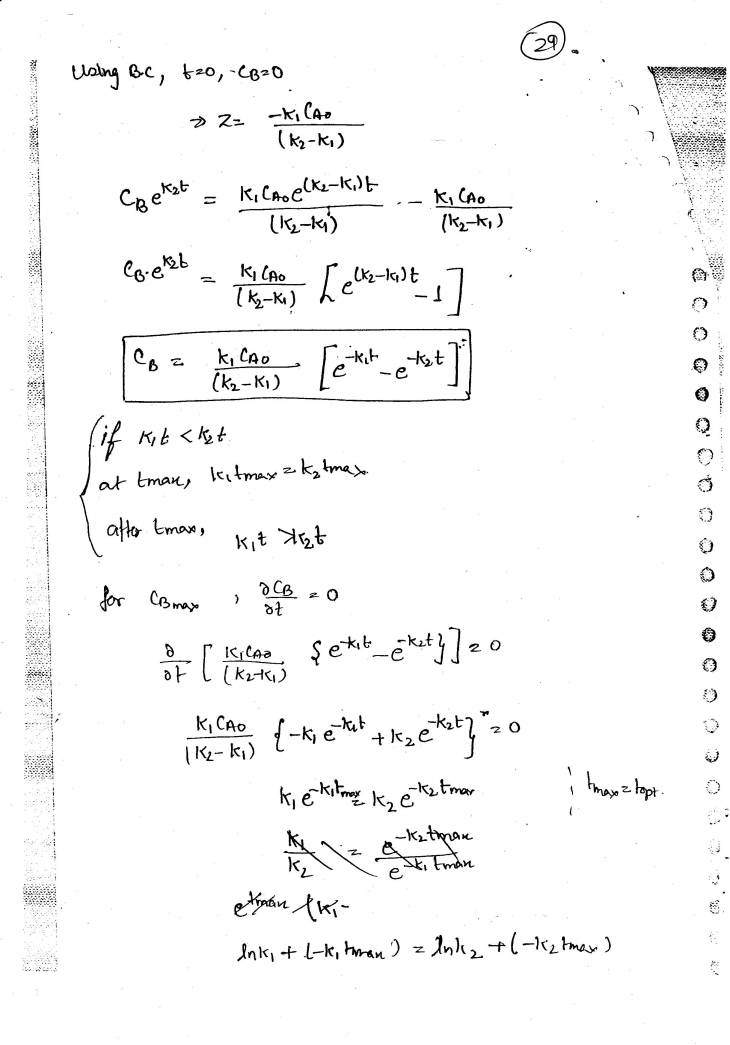 29.
Using B.C, t=0, C_B=0
⇒ Z = -K₁C_A₀ / (K₂-K₁)
C_B e^{K₂t} = K₁C_A₀e^{(K₂-K₁)t} / (K₂-K₁) - K₁C_A₀ / (K₂-K₁)
C_B·e^{K₂t} = K₁C_A₀ / (K₂-K₁) [e^{(K₂-K₁)t} - 1]
C_B = K₁C_A₀ / (K₂-K₁) [e^{-K₁t} - e^{-K₂t}]
if K₁t < K₂t
at tmax, K₁tmax = K₂tmax
after tmax, K₁t > K₂t
for C_Bmax, ∂C_B/∂t = 0
∂/∂t [K₁C_A₀ / (K₂-K₁) {e^{-K₁t} - e^{-K₂t}}] = 0
K₁C_A₀ / (K₂-K₁) {-K₁e^{-K₁t} + K₂e^{-K₂t}} = 0
K₁e^{-K₁tmax} = K₂e^{-K₂tmax} tmax = topt.
K₁/K₂ = e^{-K₂tmax} / e^{-K₁tmax}
lnK₁ + (-K₁tmax) = lnK₂ + (-K₂tmax)